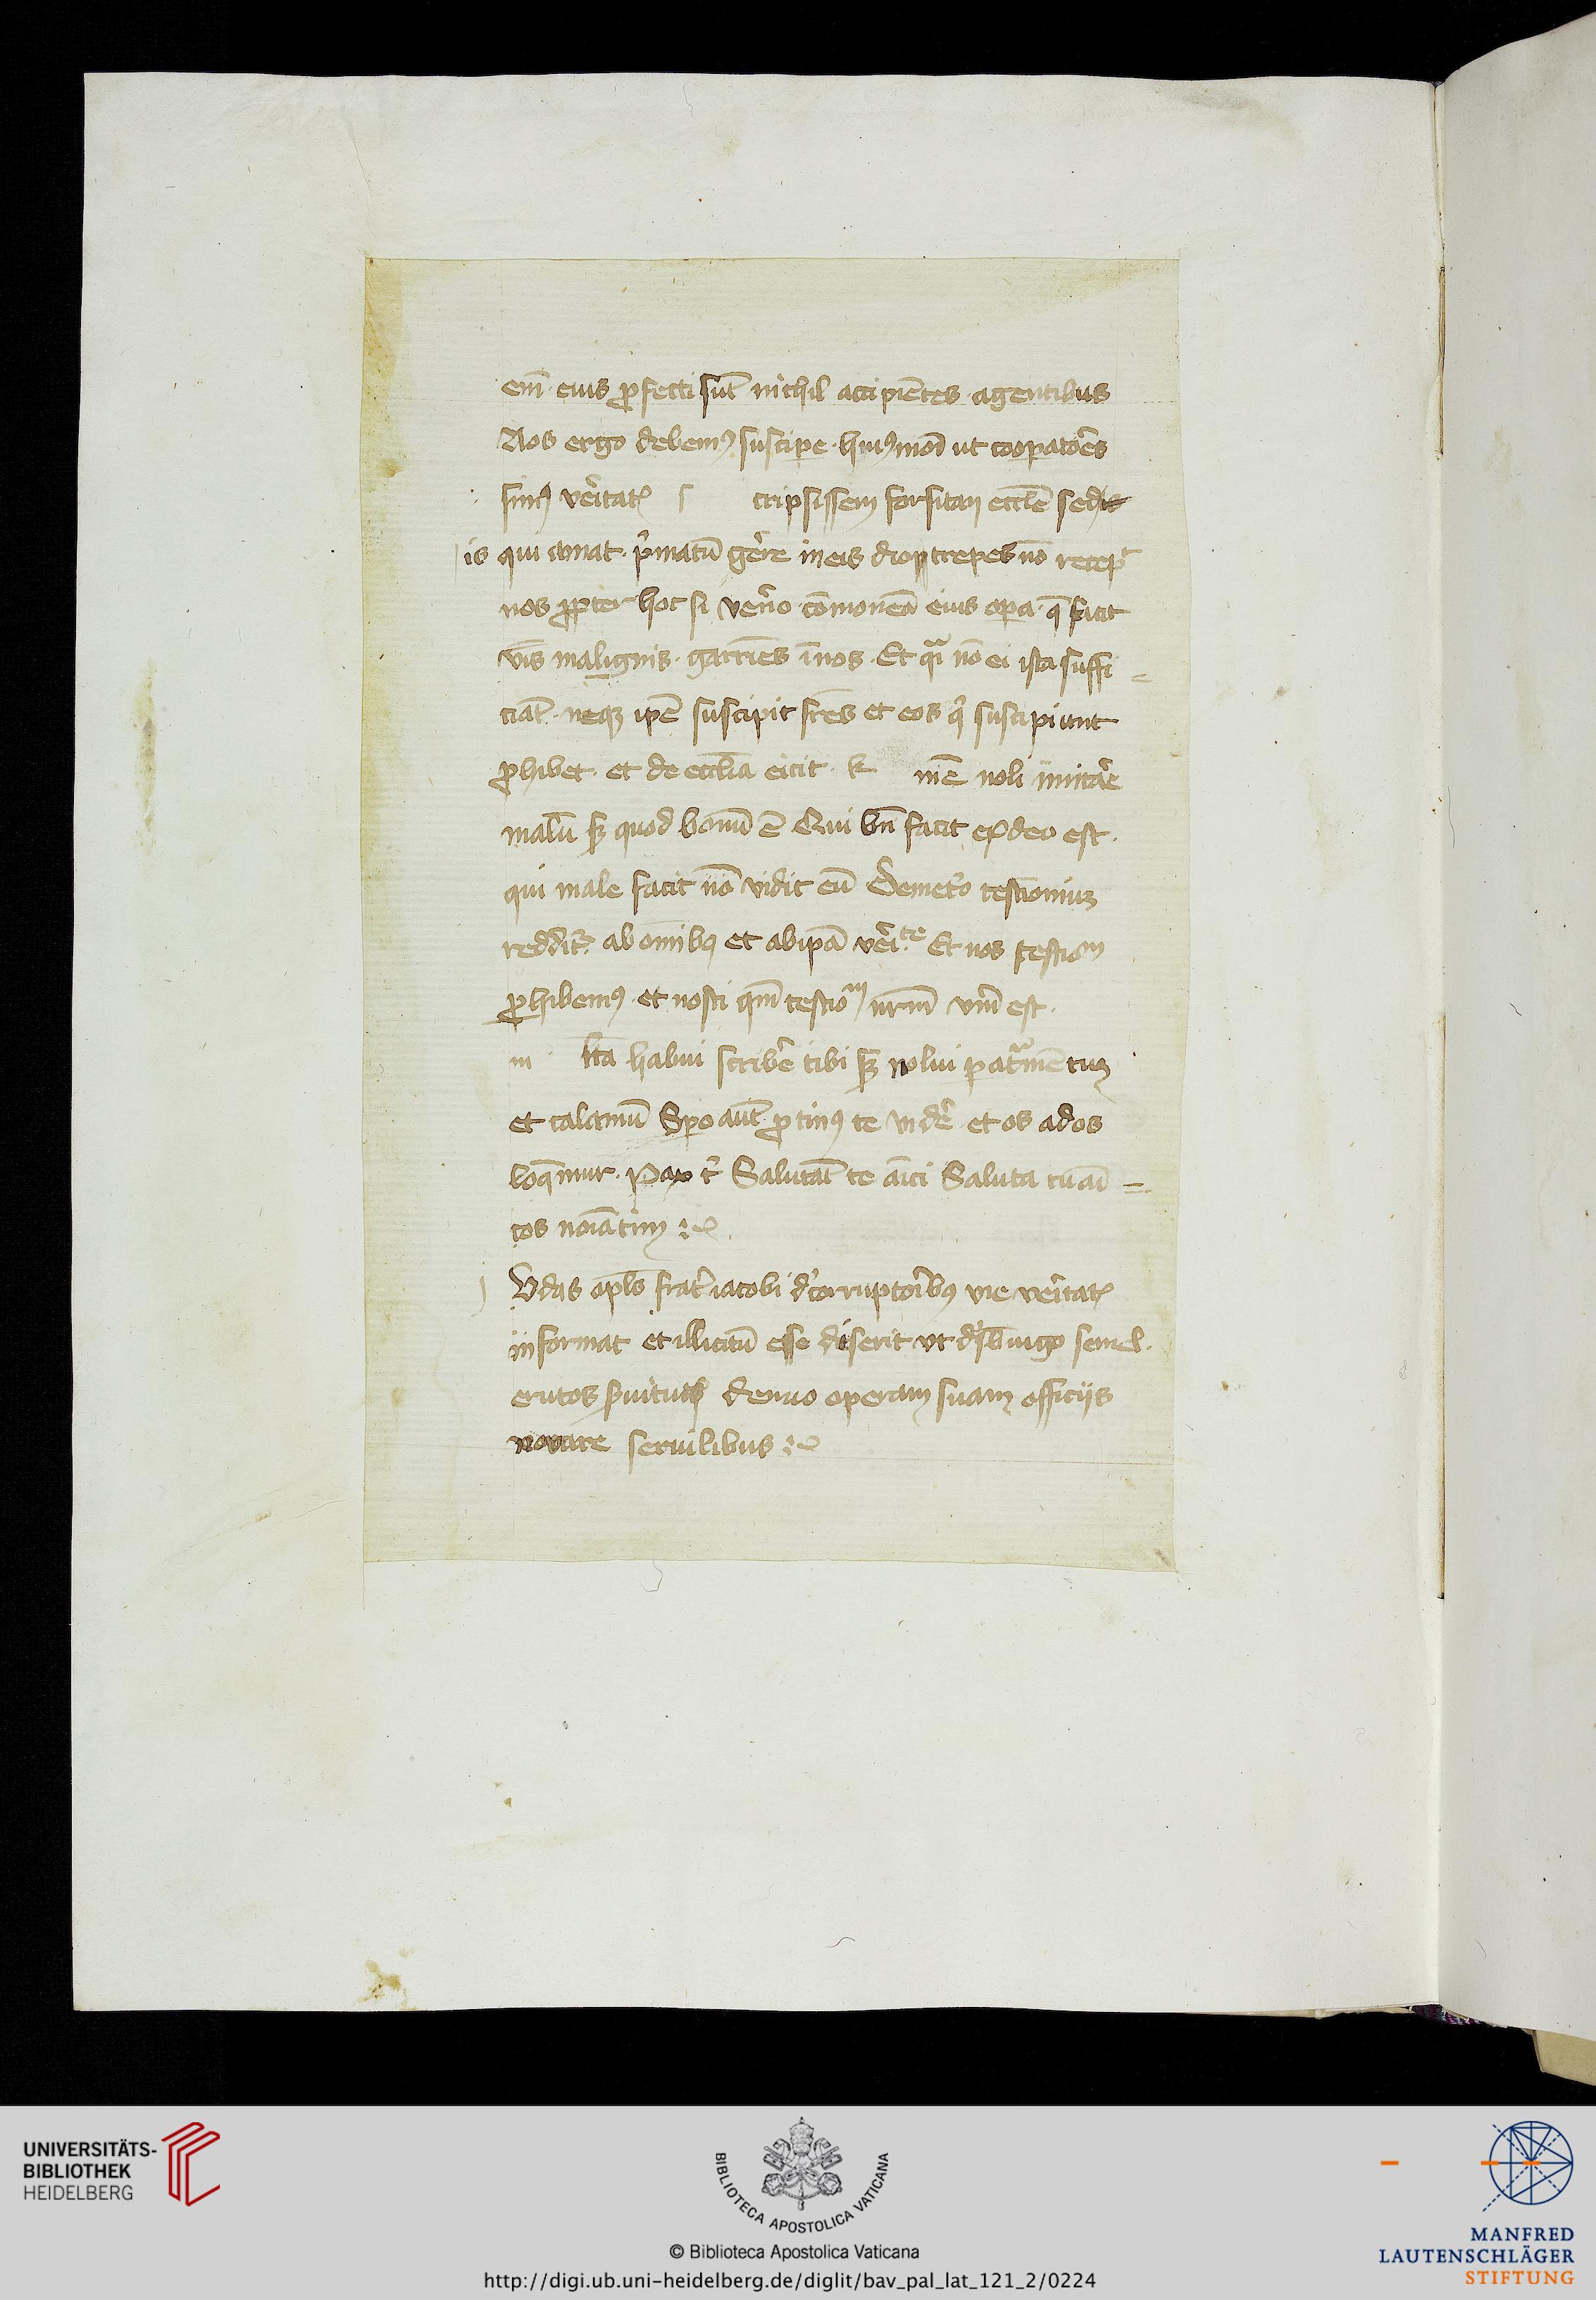 em̄ eius ꝓfecti sūt nichil accipiētes agentibus
Nos ergo debemꝰ suscipe huiꝰmōi ut cooperatoēs
simꝰ veritatꝭ s cripsissem forsitan eccłe sed
is qui amat pͥmatū gere in eis diotrepes nō recepͥ
nos ꝓpter hoc si venero cōmoneā eius opera q̄ facit
vbis malignis garriēs ī nos Et qͣi nō ei ista suffi
ciāt neqꝫ ipē suscipit frēs et eos qͥ suscipiunt
ꝓhibet et de ecclia eicit k mē noli imitare
malū sꝫ quod bonū ē Qui bn̄ facit ex deo est
qui male facit nō vidit eū Demetͥo testimoniuꝫ
redditͬ ab omībꝰ et ab ipā verite Et nos testiom
ꝓhibemꝰ et nosti qm̄ testiom nr̄m vm̄ est
m lta habui scribe tibi sꝫ nolui p atͣmētum
et calamū Spero aūt ꝓtinꝰ te vide et os ad os
loq̄mur Pax t Salutāt te amici Saluta tu ami
cos noīatim
j Vdas apls frater iacobi d corruptoribꝰ vie veritatꝭ
informat et illicitū esse diserit vt d sb iugo semel
erutos ẜuitutꝭ denuo operam suam officijs
novare seruilibus
UNIVERSITÄTS-
BIBLIOTHEK
HEIDELBERG
BIBLIOTECA APOSTOLICA VATICANA
© Biblioteca Apostolica Vaticana
http://digi.ub.uni-heidelberg.de/diglit/bav_pal_lat_121_2/0224
MANFRED
LAUTENSCHLÄGER
STIFTUNG